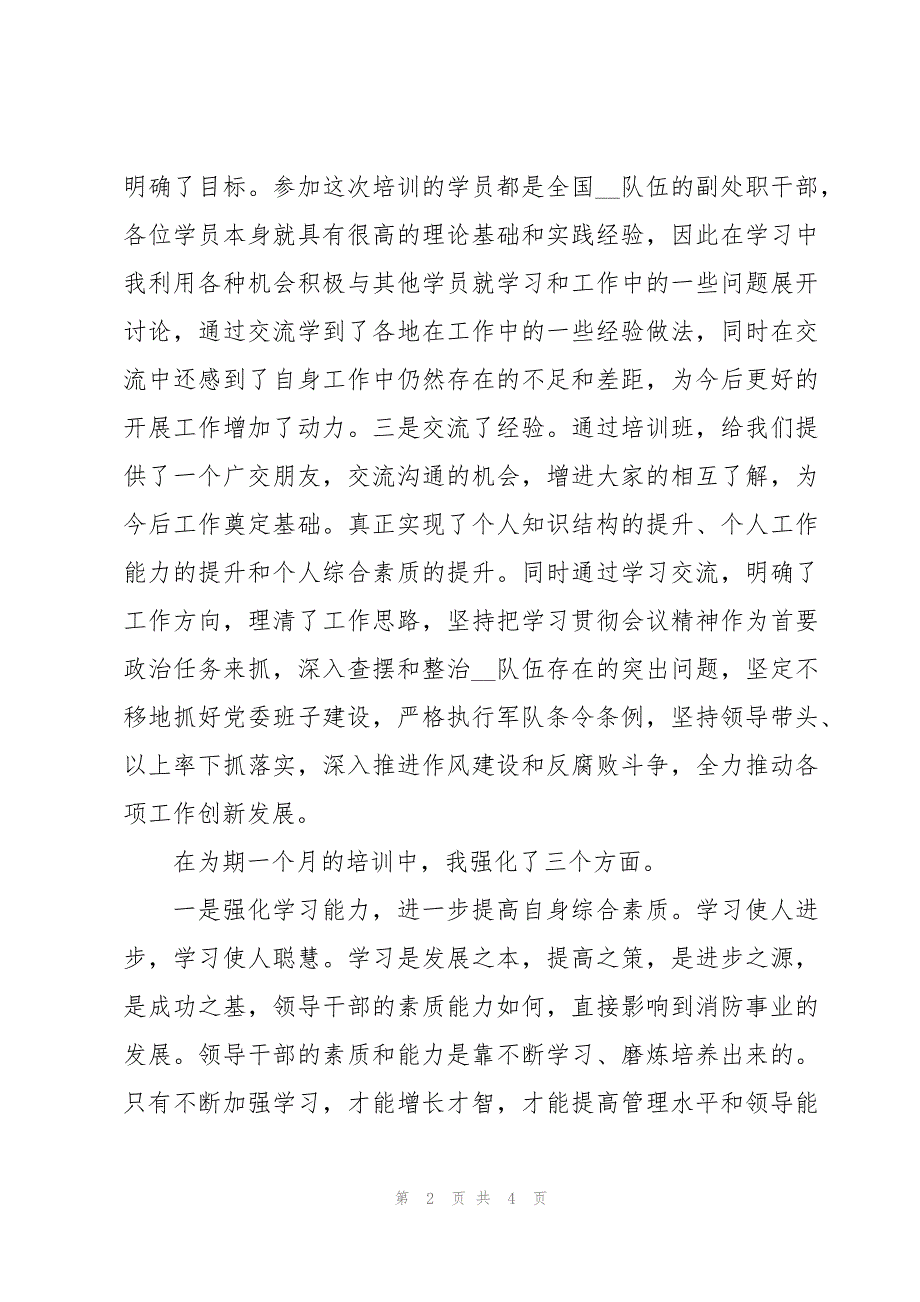 明确了目标。参加这次培训的学员都是全国__队伍的副处职干部，
各位学员本身就具有很高的理论基础和实践经验，因此在学习中
我利用各种机会积极与其他学员就学习和工作中的一些问题展开
讨论，通过交流学到了各地在工作中的一些经验做法，同时在交
流中还感到了自身工作中仍然存在的不足和差距，为今后更好的
开展工作增加了动力。三是交流了经验。通过培训班，给我们提
供了一个广交朋友，交流沟通的机会，增进大家的相互了解，为
今后工作奠定基础。真正实现了个人知识结构的提升、个人工作
能力的提升和个人综合素质的提升。同时通过学习交流，明确了
工作方向，理清了工作思路，坚持把学习贯彻会议精神作为首要
政治任务来抓，深入查摆和整治__队伍存在的突出问题，坚定不
移地抓好党委班子建设，严格执行军队条令条例，坚持领导带头、
以上率下抓落实，深入推进作风建设和反腐败斗争，全力推动各
项工作创新发展。
在为期一个月的培训中，我强化了三个方面。
一是强化学习能力，进一步提高自身综合素质。学习使人进
步，学习使人聪慧。学习是发展之本，提高之策，是进步之源，
是成功之基，领导干部的素质能力如何，直接影响到消防事业的
发展。领导干部的素质和能力是靠不断学习、磨炼培养出来的。
只有不断加强学习，才能增长才智，才能提高管理水平和领导能
第 2 页 共 4 页